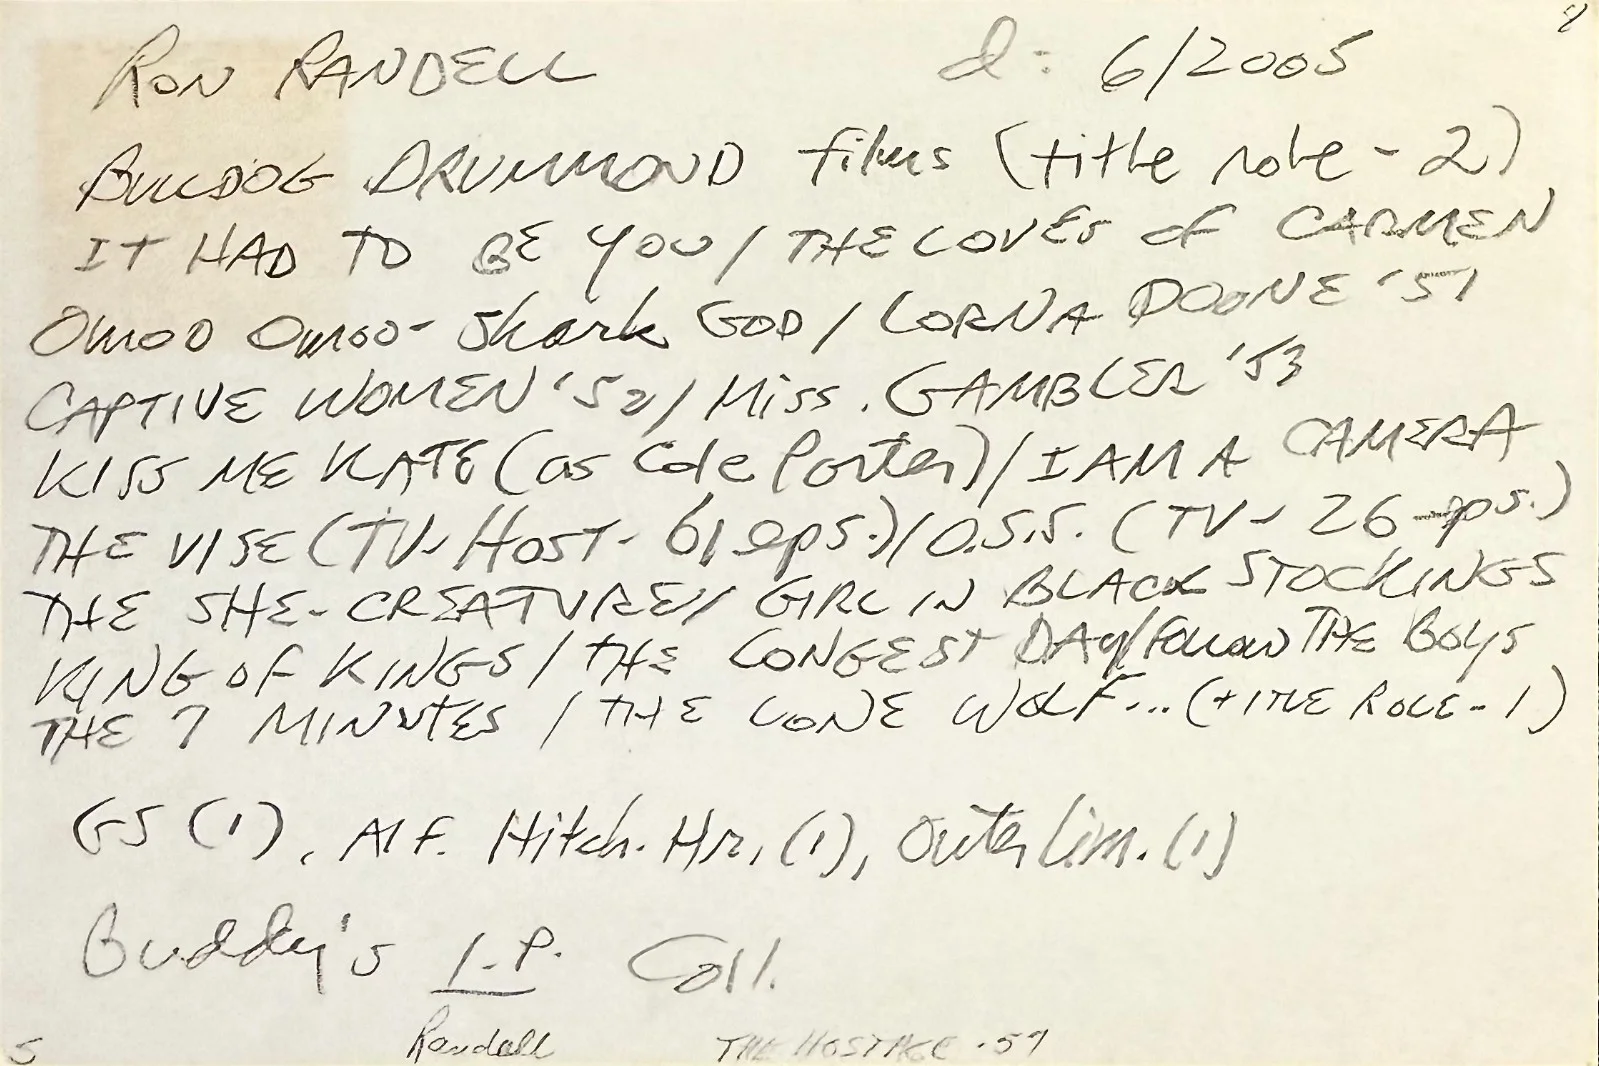 RON RANDELL d: 6/2005
BULLDOG DRUMMOND films (title role - 2)
IT HAD TO BE YOU / THE LOVES OF CARMEN
OMOO OMOO - Shark GOD / LORNA DOONE '51
CAPTIVE WOMEN '52 / Miss. GAMBLER '53
KISS ME KATE (as Cole Porter) / I AM A CAMERA
THE VISE (TV - HOST - 61 eps.) / O.S.S. (TV - 26 eps.)
THE SHE-CREATURE / GIRL IN BLACK STOCKINGS
KING OF KINGS / THE LONGEST DAY / Follow THE Boys
THE 7 MINUTES / THE LONE WOLF... (TITLE ROLE - 1)
GS (1), Alf. Hitch. Hr. (1), Outer Lim. (1)
Buddy's I.P. Coll.
5 Randell THE HOSTAGE '57